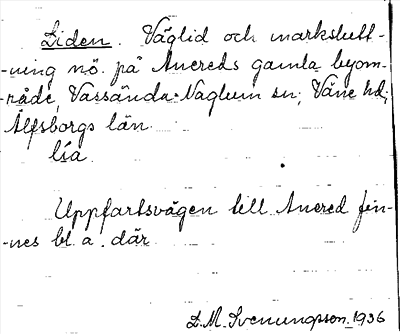 Liden. Väglid och markslutt-
-ning nö. på Anereds gamla byom-
-råde, Vassända-Naglum sn; Väne hd;
Älfsborgs län.
lía.
Uppfartsvägen till Anered fin-
-nes bl. a. där.
D. M. Svenungsson 1936